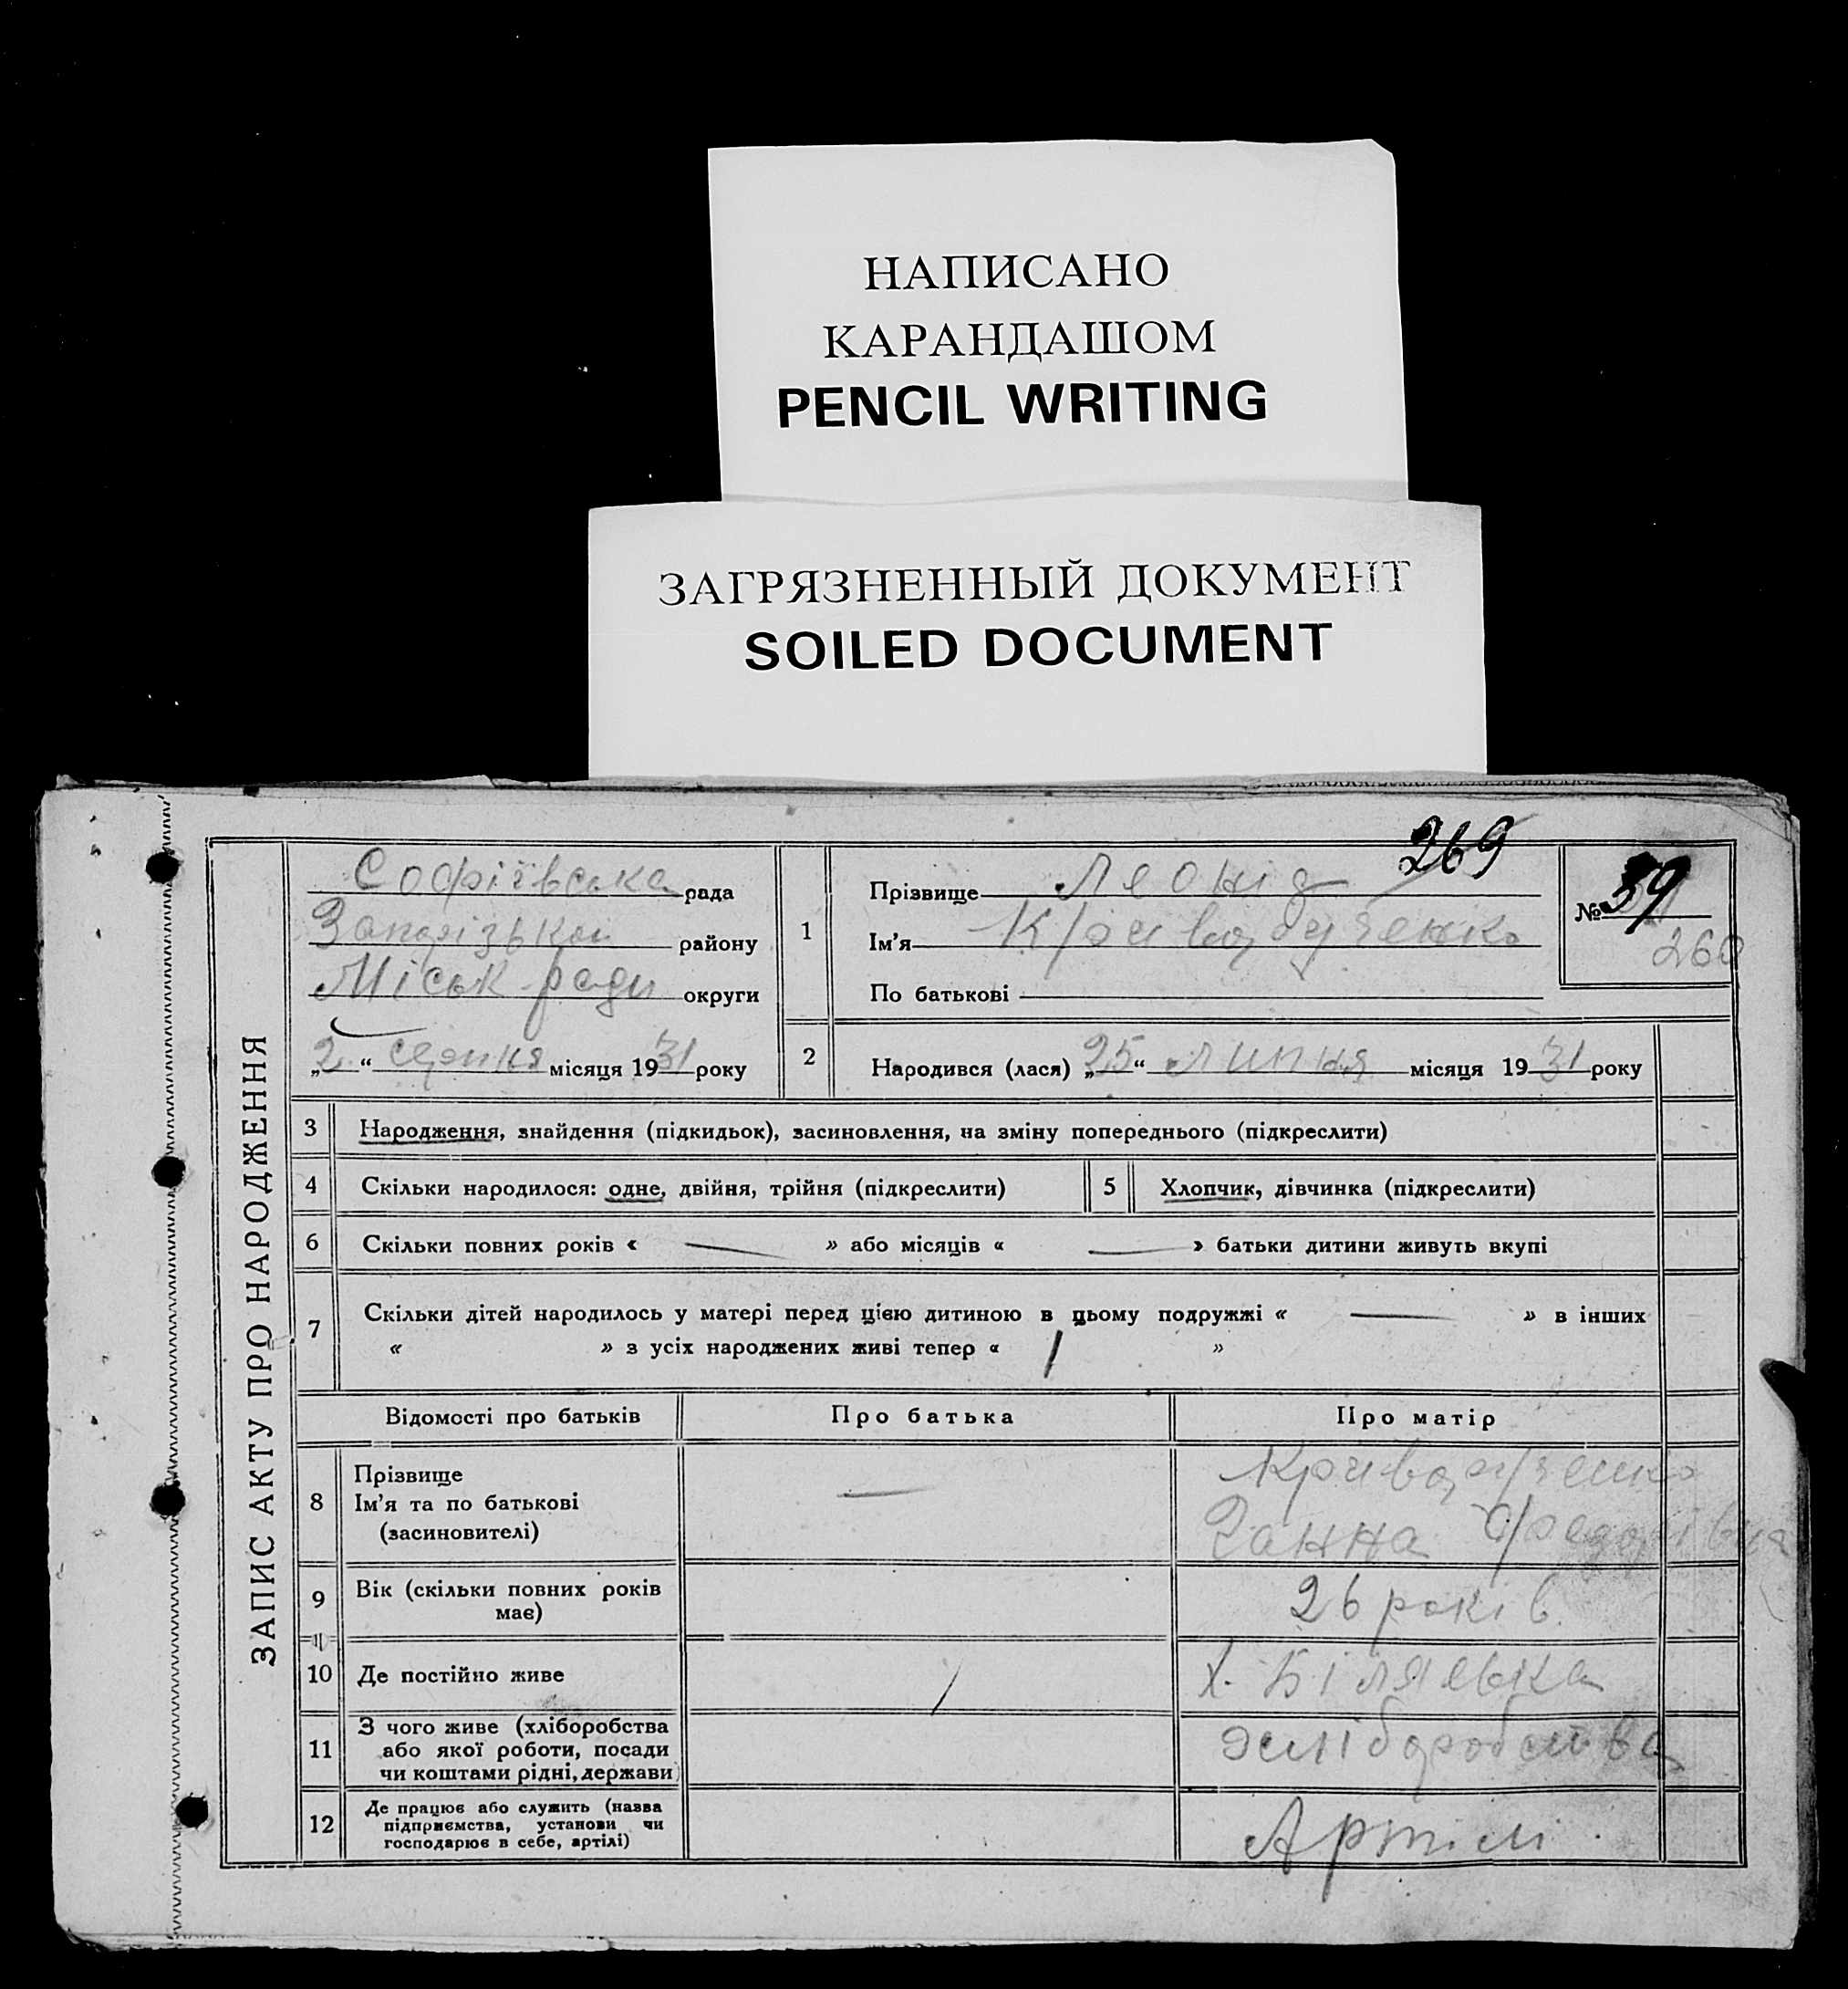 НАПИСАНО
КАРАНДАШОМ
PENCIL WRITING
ЗАГРЯЗНЕННЫЙ ДОКУМЕНТ
SOILED DOCUMENT
ЗАПИС АКТУ ПРО НАРОДЖЕННЯ
Софіївська рада
району
Міськ ради округи
„2“ серпня місяця 1931 року
269
1 Прізвище Леонід
Ім'я
По батькові
№ 39
260
2 Народився (лася) „25“ липня місяця 1931 року
3 Народження, знайдення (підкидьок), засиновлення, на зміну попереднього (підкреслити)
4 Скільки народилося: одне, двійня, трійня (підкреслити) 5 Хлопчик, дівчинка (підкреслити)
6 Скільки повних років « — » або місяців « — » батьки дитини живуть вкупі
7 Скільки дітей народилось у матері перед цією дитиною в цьому подружжі « — » в інших
« » з усіх народжених живі тепер « 1 »
Відомості про батьків Про батька Про матір
8 Прізвище
Ім'я та по батькові —
(засиновителі) Ганна Федорівна
9 Вік (скільки повних років має) 26 років
10 Де постійно живе / х. Біляєвка
11 З чого живе (хліборобства
або якої роботи, посади
чи коштами рідні, держави
12 Де працює або служить (назва
підприємства, установи чи
господарює в себе, артілі) Артілі